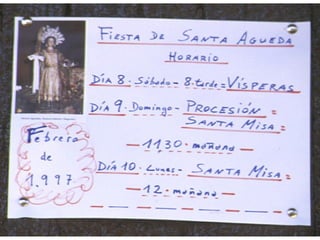 Fiesta de Santa Agueda
Horario
Día 8. Sábado - 8 tarde = Vísperas
Día 9. Domingo - Procesión =
Santa Misa =
11,30 - mañana
Día 10. Lunes - Santa Misa =
12 - mañana
Febrero
de
1.997